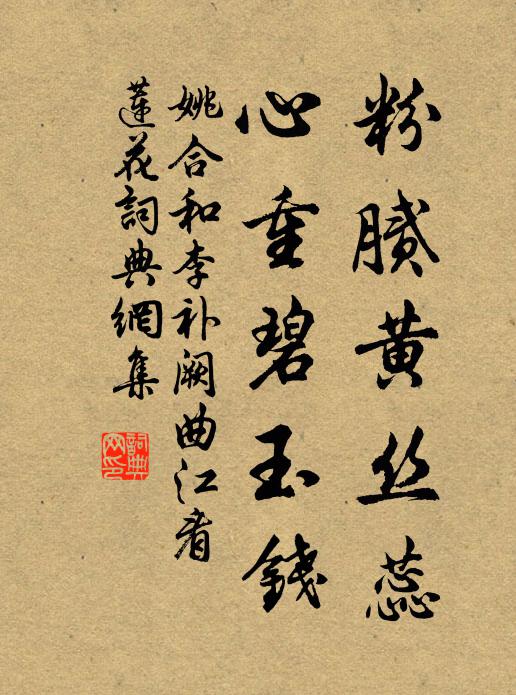 粉膩黄丝蕊
心重碧玉錢
姚合和李补阙曲江看
蓮花詞典網集
詞典
网印